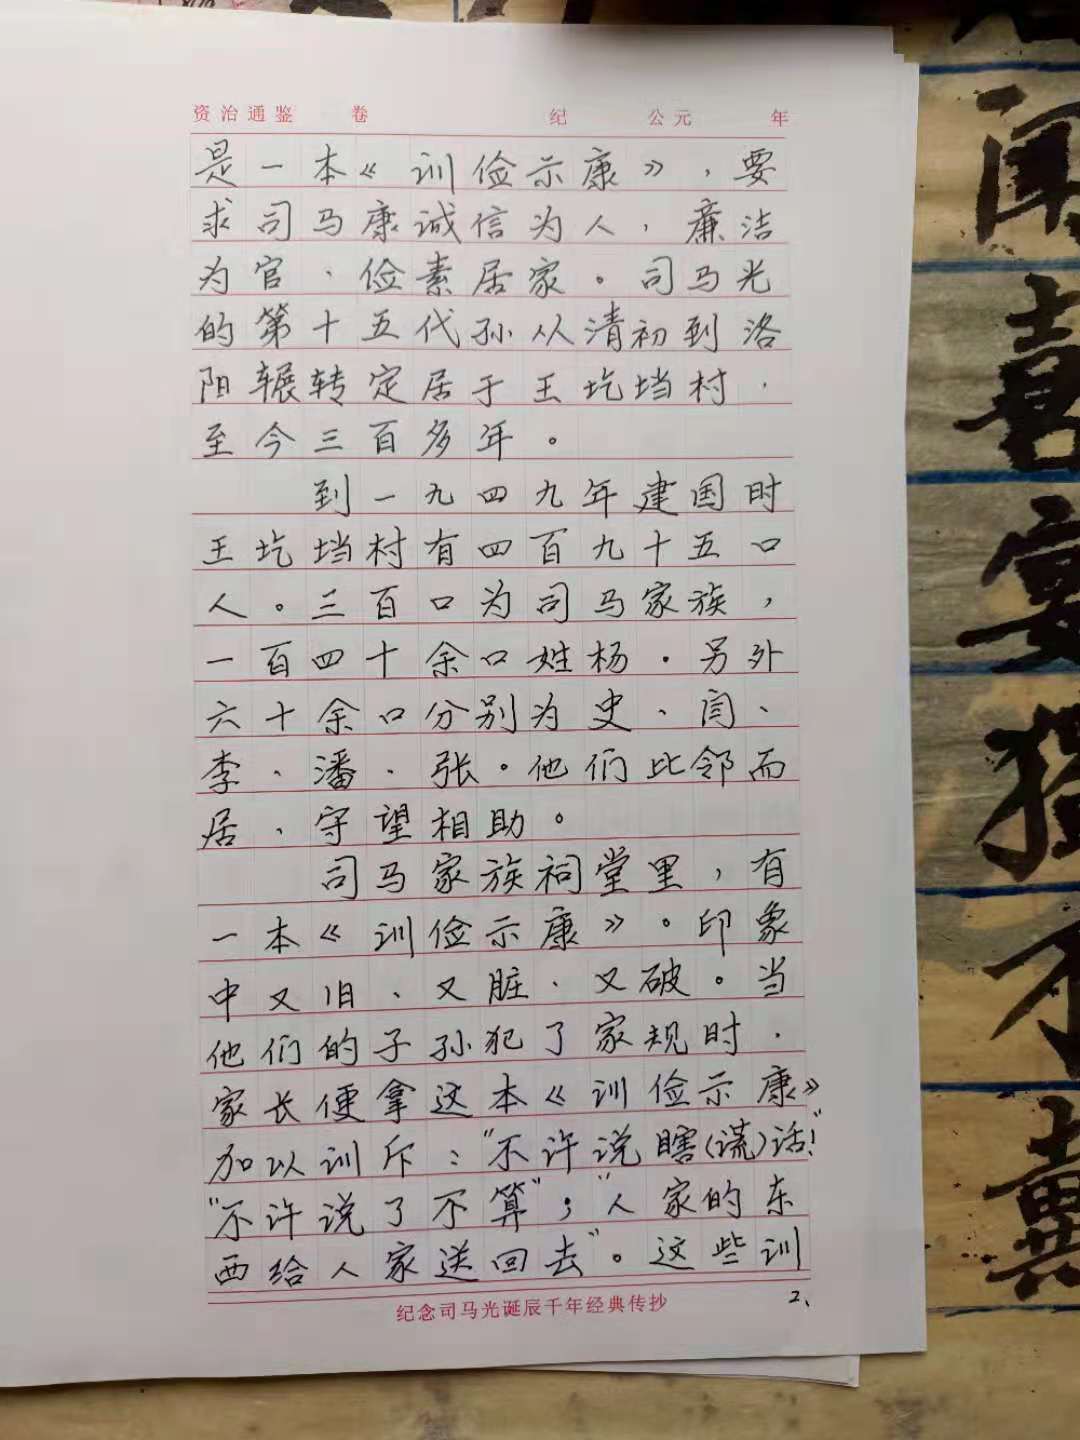 资治通鉴 卷 纪 公元 年
是一本《训俭示康》，要
求司马康诚信为人，廉洁
为官、俭素居家。司马光
的第十五代孙从清初到洛
阳辗转定居于王圪垱村，
至今三百多年。
到一九四九年建国时
王圪垱村有四百九十五口
人。三百口为司马家族，
一百四十余口姓杨．另外
六十余口分别为史、闫、
李、潘、张。他们比邻而
居、守望相助。
司马家族祠堂里，有
一本《训俭示康》。印象
中又旧、又脏、又破。当
他们的子孙犯了家规时．
家长便拿这本《训俭示康》
加以训斥："不许说瞎(谎)话！"
"不许说了不算"；"人家的东
西给人家送回去"。这些训
纪念司马光诞辰千年经典传抄
2、
闻
喜
宴
独
不
戴